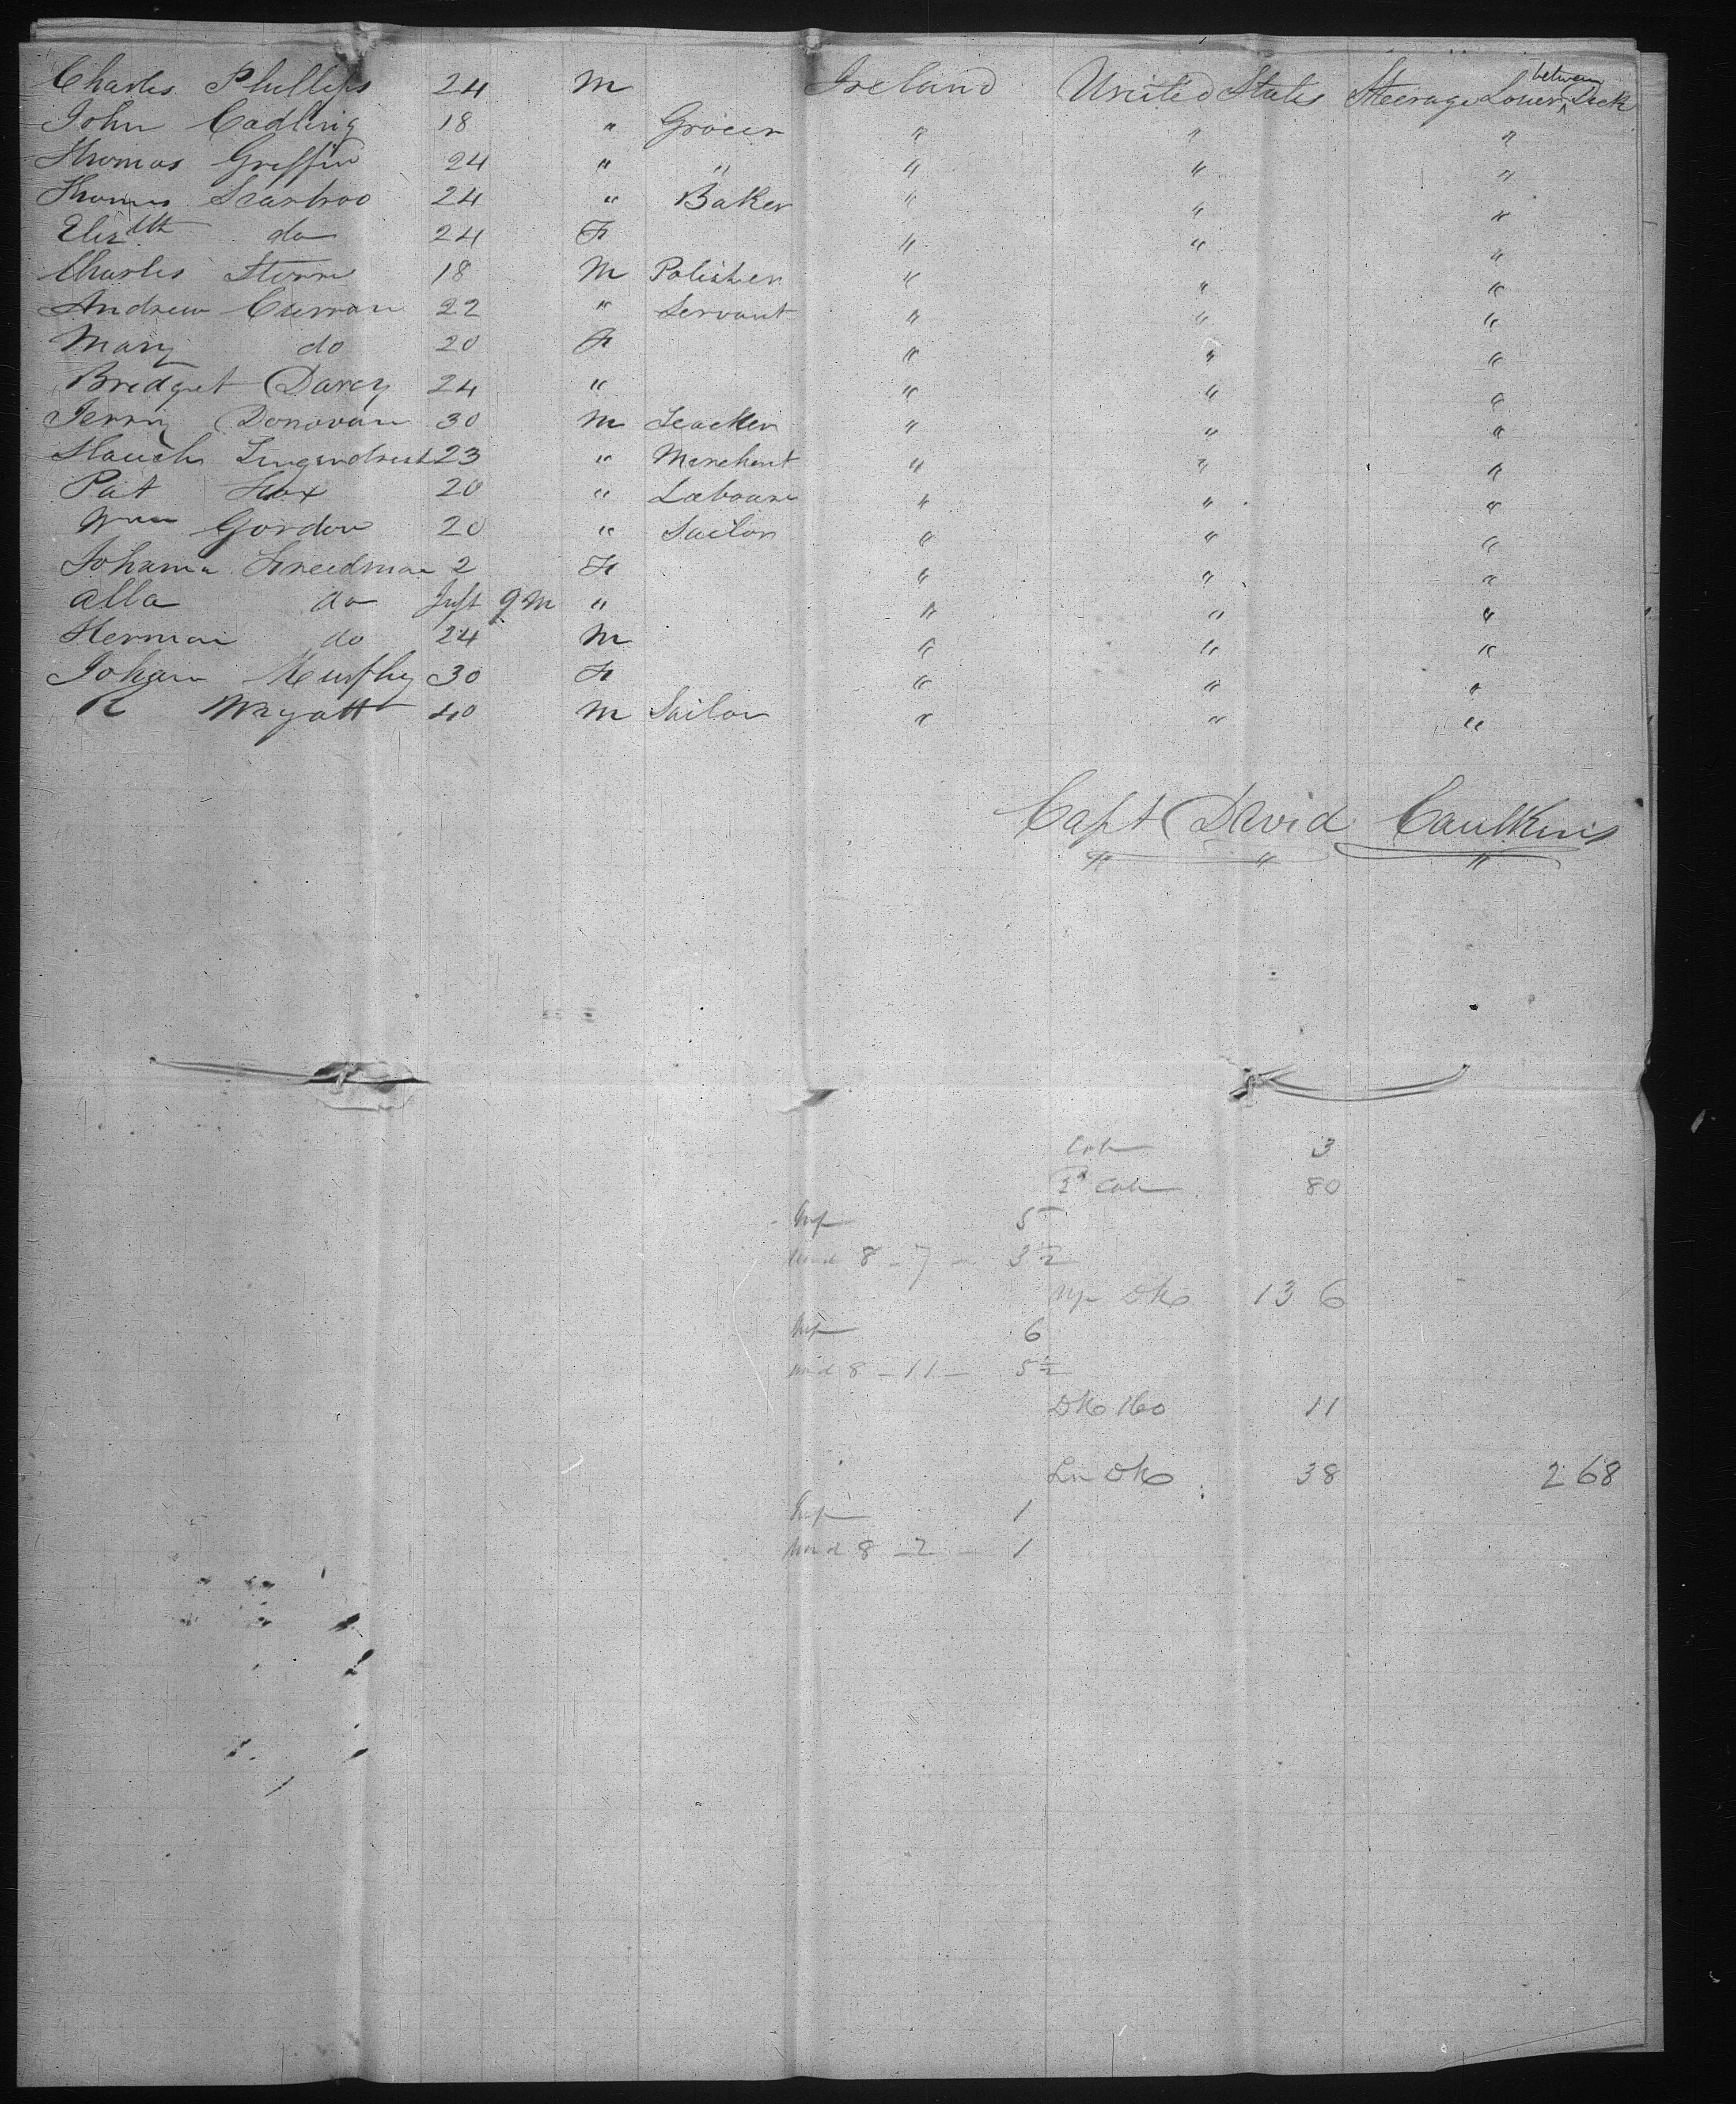 Charles Phillips 24 M Ireland United States Steerage Lower between Deck
John Cadling 18 " Grocer " " "
Thomas Griffin 24 " " " " "
Thomas Scarbroo 24 " Baker " " "
Elizbth do 24 F " " "
Charles 18 M Polisher " " "
Andrew Curran 22 " Servant " " "
Mary do 20 F " " "
Bredget Darcy 24 " " " "
Jerry Donovan 30 M " " "
23 " Merchent " " "
Pat Fox 20 " " " "
Wm Gordon 20 " Sailor " " "
Johanna Freedman 2 F " " "
Alla do Inft 9 M " " " "
Herman do 24 M " " "
Johan Murphy 30 F " " "
R Wryatt 40 M Sailor " " "
Capt David Caulkins
" " "
Cab 3
2d Cab 80
Inf 5
Und 8 - 7 - 3 1/2
Up Dk 136
Inf 6
Und 8 - 11 - 5 1/2
Dk Ho 11
Lr Dk 38 268
Inf 1
Und 8 - 2 - 1